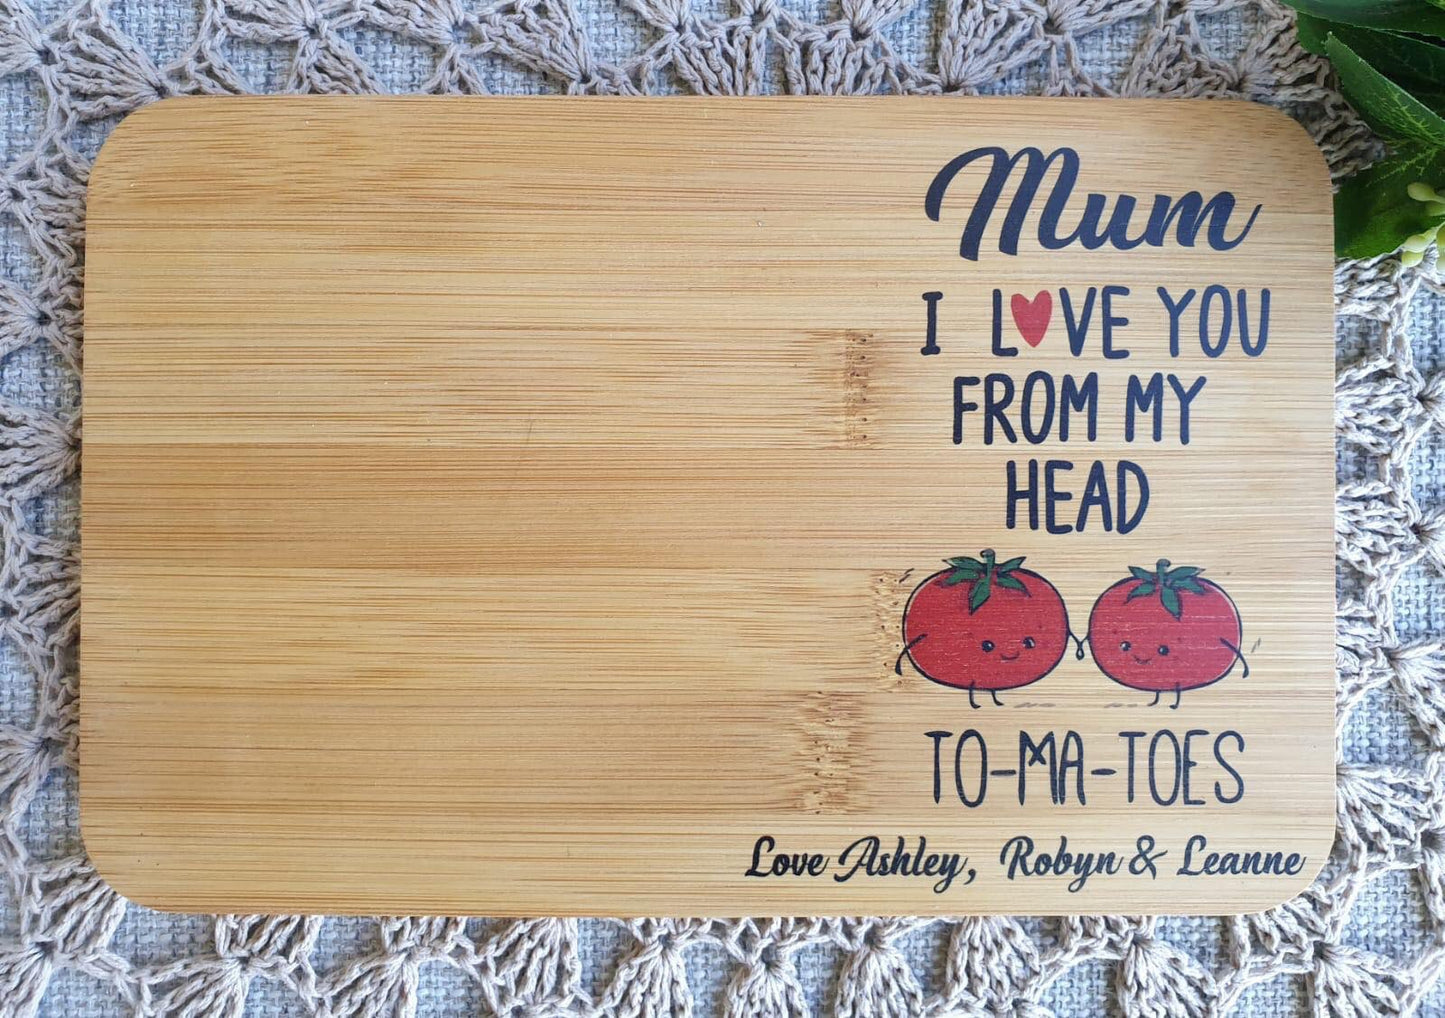 Mum
I LOVE YOU
FROM MY
HEAD
TO-MA-TOES
Love Ashley, Robyn & Leanne